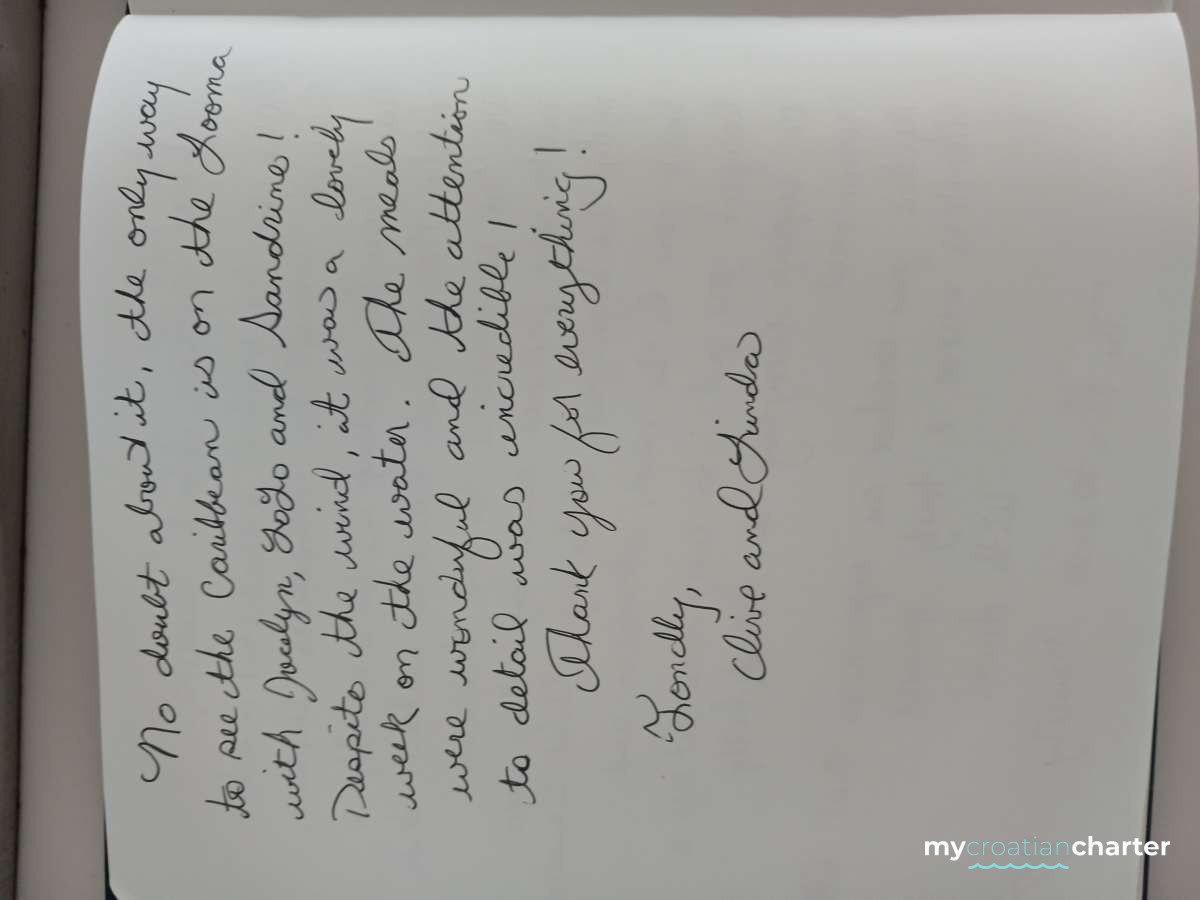 No doubt about it, the only way
to see the Caribbean is on the Looma
with Jocelyn, YoYo and Sandrine!
Despite the wind, it was a lovely
week on the water. The meals
were wonderful and the attention
to detail was incredible!
Thank you for everything!
Fondly,
Clive and Linda
mycroatiancharter